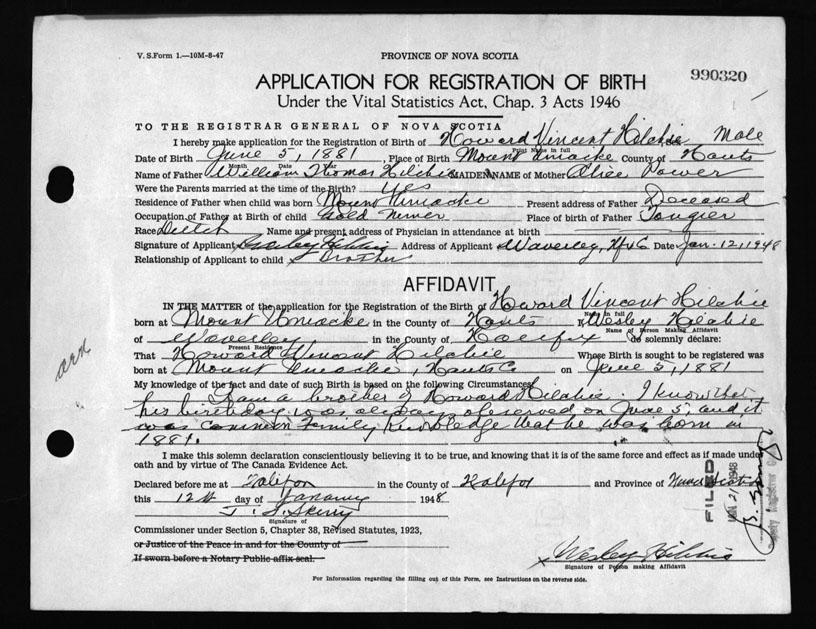 V. S. Form 1.—10M-8-47
PROVINCE OF NOVA SCOTIA
990320
APPLICATION FOR REGISTRATION OF BIRTH
Under the Vital Statistics Act, Chap. 3 Acts 1946
TO THE REGISTRAR GENERAL OF NOVA SCOTIA
I hereby make application for the Registration of Birth of Howard Vincent Hilchie Male
Print Name in full
Date of Birth June 5, 1881, Place of Birth Mount Uniacke County of Hants
Month Date Year
Name of Father William Thomas Hilchie MAIDEN NAME of Mother Alice Power
Were the Parents married at the time of the Birth? Yes
Residence of Father when child was born Mount Uniacke Present address of Father Deceased
Occupation of Father at Birth of child Gold Miner Place of birth of Father Tangier
Race Dutch Name and present address of Physician in attendance at birth
Signature of Applicant Wesley Hilchie Address of Applicant Waverley, Hfx Co Date Jan. 12, 1948
Relationship of Applicant to child Brother
AFFIDAVIT
IN THE MATTER of the application for the Registration of the Birth of Howard Vincent Hilchie
Name in full
born at Mount Uniacke in the County of Hants I, Wesley Hilchie
Name of Person Making Affidavit
of Waverley, in the County of Halifax do solemnly declare:
Present Residence
That Howard Vincent Hilchie Whose Birth is sought to be registered was
born at Mount Uniacke, Hants Co. on June 5, 1881
My knowledge of the fact and date of such Birth is based on the following Circumstances
I am a brother of Howard Hilchie. I know that
his birthday was always observed on June 5, and it
was common family knowledge that he was born in
1881.
I make this solemn declaration conscientiously believing it to be true, and knowing that it is of the same force and effect as if made under
oath and by virtue of The Canada Evidence Act.
Declared before me at Halifax in the County of Halifax and Province of Nova Scotia
this 12th day of January 1948
Signature of
Commissioner under Section 5, Chapter 38, Revised Statutes, 1923,
or Justice of the Peace in and for the County of
If sworn before a Notary Public affix seal.
Wesley Hilchie
Signature of Person making Affidavit
For Information regarding the filling out of this Form, see Instructions on the reverse side.
FILED
1948